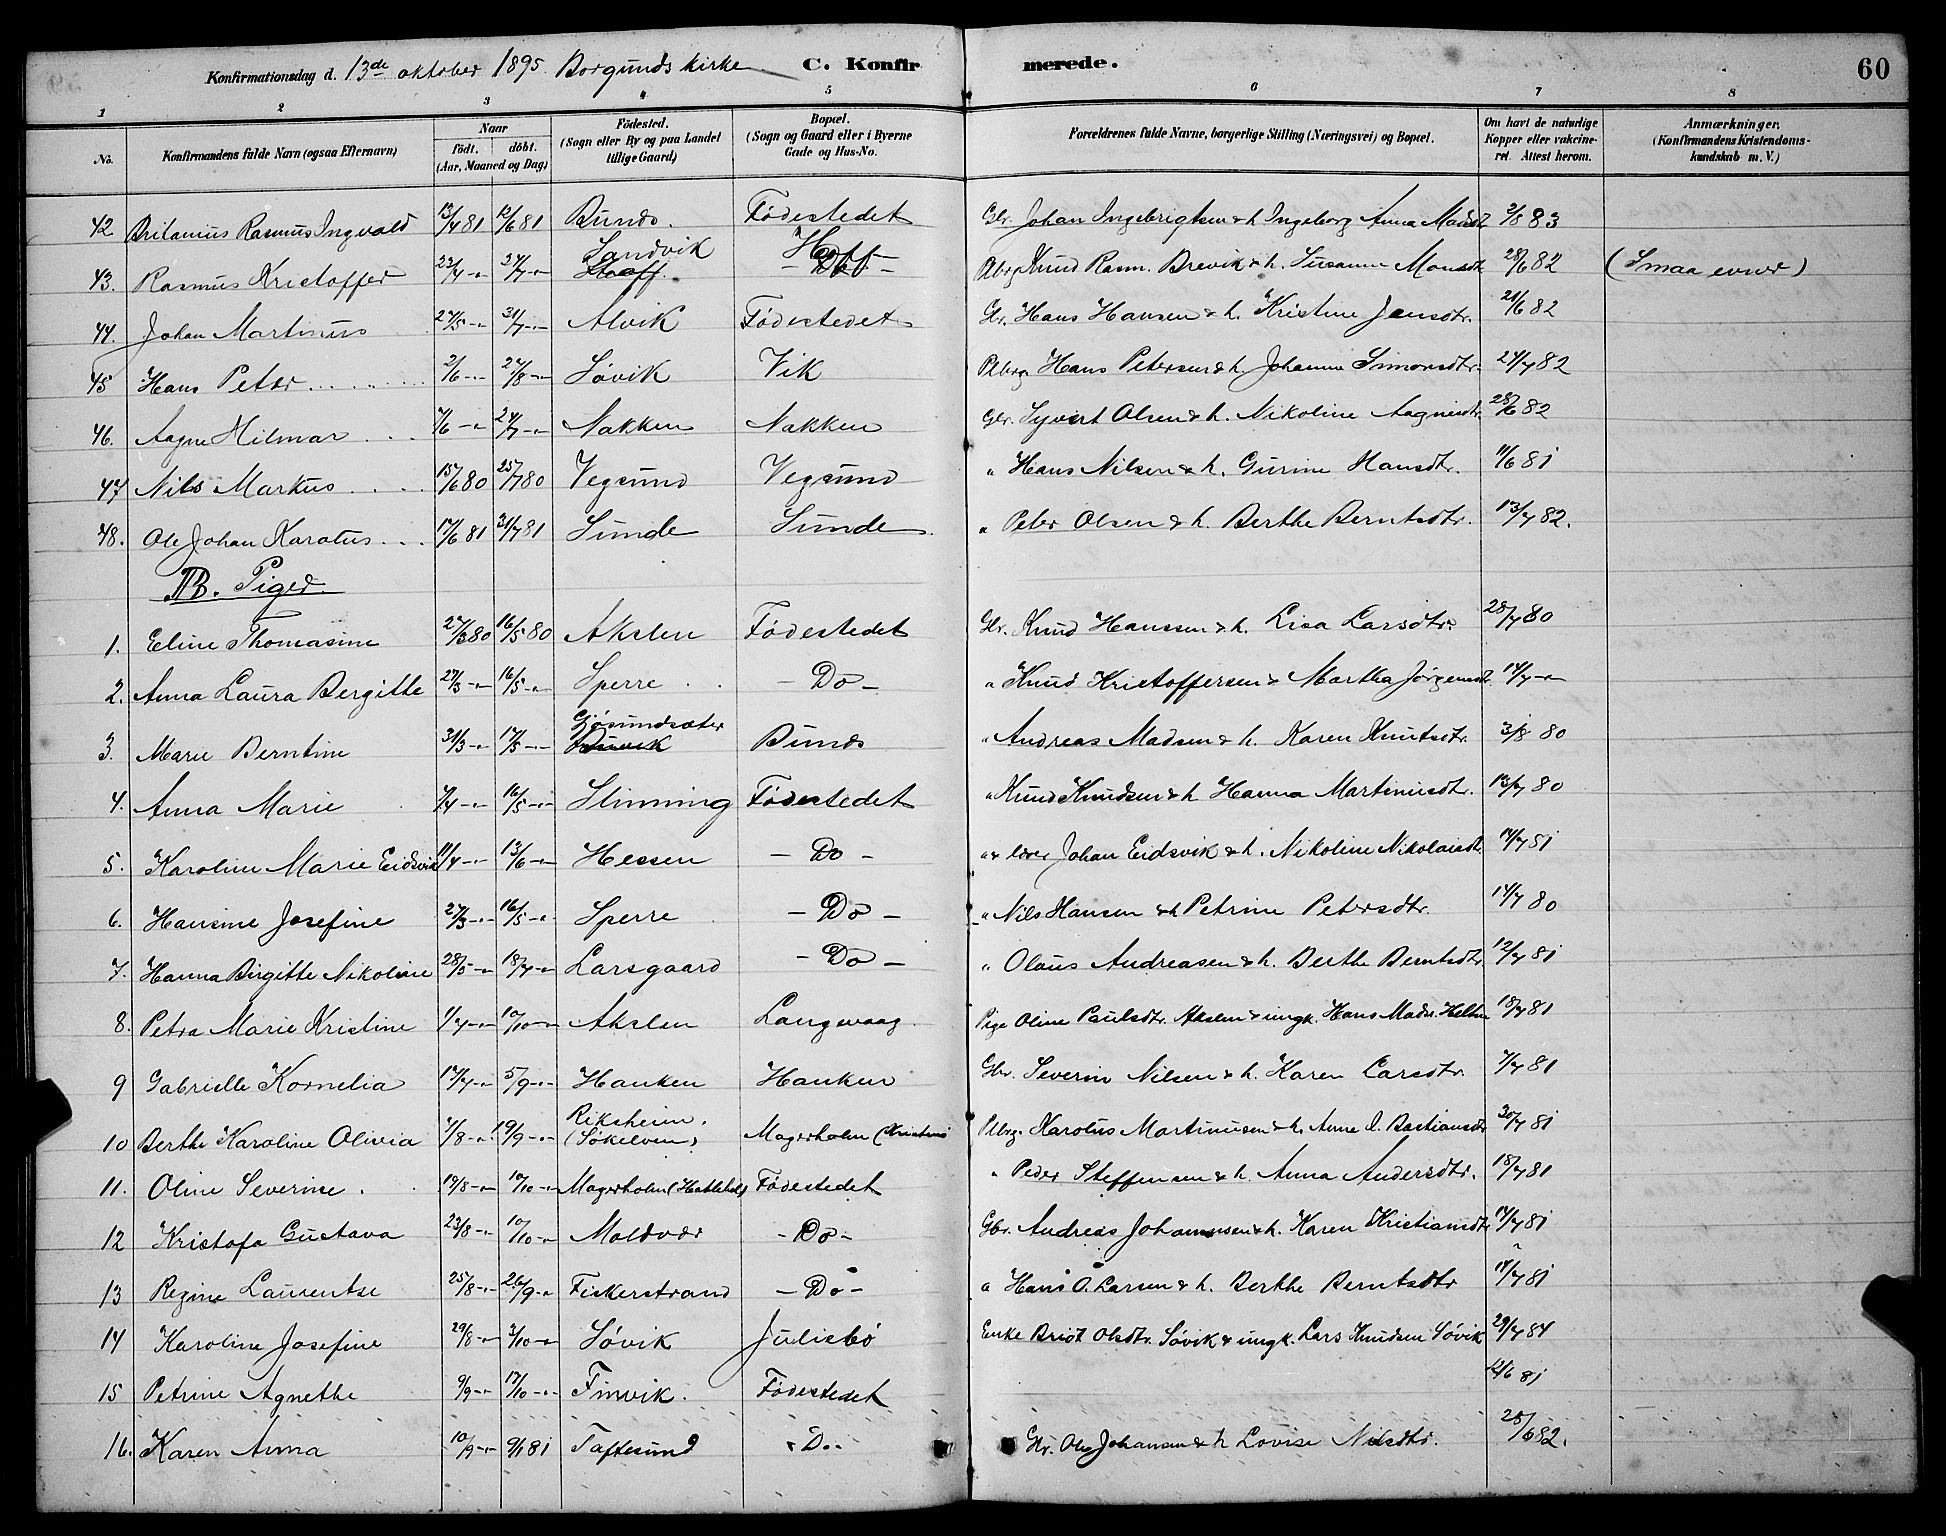 Konfirmationsdag d. 13de oktober 1895. Borgunds kirke C. Konfirmerede. 60
1 2 3 4 5 6 7 8
No. Konfirmandens fulde Navn (ogsaa Efternavn) Naar født. døbt. (Aar, Maaned og Dag) Fødested. (Sogn eller By og paa Landet tillige Gaard) Bopæl. (Sogn og Gaard eller i Byerne Gade og Hus-No. Forældrenes fulde Navne, borgerlige Stilling (Næringsvei) og Bopæl. Om havt de naturlige Kopper eller vakcineret. Attest herom. Anmærkninger. (Konfirmandens Kristendomskundskab m. V.)
42 Britanius Rasmus Ingvald 13/4 81 12/6 81 Bunds. Fødestedet Gbr. Johan Ingebrigtsen & h. Ingeborg Anna Madsdtr 2/8 83
43. Rasmus Kristoffer 23/4 -"- 24/7 -"- Sandvik Hoff Knud Rasm. Brevik & h. Susanne Monsdtr 28/6 82 (Smaa evner)
44. Johan Martinus 27/5 -"- 31/7 -"- Alvik Fødestedet Gbr. Hans Hansen & h. Kristine Jensdtr. 21/6 82
45 Hans Peter 2/6 -"- 27/8 -"- Søvik Vik Plbrg. Hans Petersen & h. Johanne Simonsdtr. 24/7 82
46. Aagne Hilmar 7/6 -"- 24/7 -"- Nakken Nakken Gbr. Syvert Olsen & h. Nikoline Aagnesdtr. 28/6 82
47 Nils Markus 15/6 80 25/7 80 Vegsund Vegsund " Hans Nilsen & h. Gurine Hansdtr. 11/6 81
48. Ole Johan Karolus 17/6 81 31/7 81 Sunde Sunde " Peter Olsen & h. Berthe Berntsdtr. 13/7 82.
B. Piger.
1. Eline Thomasine 27/3 80 16/5 80 Akslen Fødestedet Gbr. Knud Hanssen & h. Lisa Larsdtr. 28/7 80
2. Anna Laura Bergitte 27/3 -"- 16/5 -"- Sperre - Do - " Knud Kristoffersen & Martha Jørgensdtr. 14/7 -"-
3. Marie Berntine 31/3 -"- 17/5 -"- Gjøsundsæter Bunds " Andreas Madsen & h. Karen Knutsdtr. 3/8 80
4. Anna Marie 4/4 -"- 16/5 -"- Slinning Fødestedet " Knud Knudsen & h Hanna Martinusdtr. 13/7 80
5. Karoline Marie Eidsvik 11/4 -"- 13/6 -"- Hessen - Do - " & lærer Johan Eidsvik & h. Nikoline Nikolaisdtr. 14/7 81
6. Hansine Josefine 27/3 -"- 16/5 -"- Sperre - Do - " Nils Hansen & h Petrine Petersdtr. 14/7 80
7. Hanna Birgitte Nikoline 28/5 -"- 18/7 -"- Larsgaard - Do - " Olaus Andreasen & h. Berthe Berntsdtr 12/7 81
8. Petra Marie Kristine 1/7 -"- 10/10 -"- Akslen Langevaag. Pige Oline Paulsdtr. Akslen & ungk. Hans Mads. 18/7 81
9 Gabrielle Kornelia 17/7 -"- 5/9 -"- Hanken Hanken Gbr. Severin Nilsen & h. Karen Larsdtr. 7/7 81
10 Berthe Karoline Olivia 7/8 -"- 19/9 -"- Riksheim. (Søkelven) Magerholm Plbrg. Karolus Martinusen & h. Anne Bastiansdtr 30/7 81
11. Oline Severine. 19/8 -"- 10/10 -"- Magerholm Fødestedet " Peder Steffensen & h. Anna Andersdtr. 18/7 81
12 Kristofa Gustava 23/8 -"- 10/10 -"- Moldvær - Do - Gbr. Andreas Johannesen & h. Karen Kristiansdtr 14/7 81
13 Regine Laurentse 25/8 -"- 26/9 -"- Fiskerstrand - Do - " Hans O. Larsen & h. Berthe Berntsdtr 18/7 81
14 Karoline Josefine 29/8 -"- 3/10 -"- Søvik Julisbø Enke Briot Olsdtr. Søvik & ungk. Lars Knudsen Søvik 29/7 84
15 Petrine Agnethe 9/9 -"- 17/10 -"- Tinvik. Fødestedet 12/6 81
16. Karen Anna 10/9 -"- 9/1 81 Taftesund - Do - Gbr. Ole Johansen & h Lovise Nilsdtr. 28/6 82.